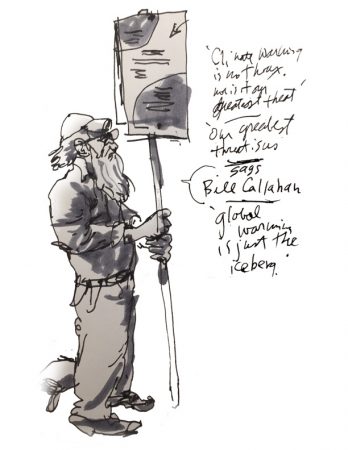 'Climate warming
is not hoax.
nor is it our
greatest threat'
'Our greatest
threat is us
says
Bill Callahan
'global
warming
is just the
iceberg.'